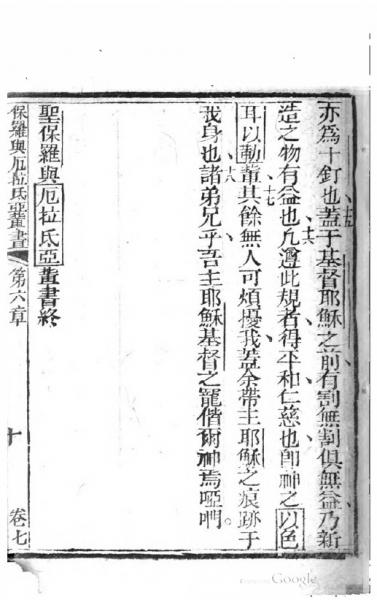 亦為十釘也蓋于基督耶穌之前有割無割俱無益乃新
十五
造之物有益也凡遵此規者得平和仁慈也即神之以色
十六
耳以勭輩其餘無人可煩擾我蓋余帶主耶穌之痕跡于
十七
我身也諸弟兄乎吾主耶穌基督之寵偕爾神焉啞們。
十八
聖保羅與厄拉氐亞輩書終
保羅與厄拉氐亞輩書
第六章
十
卷七
Google